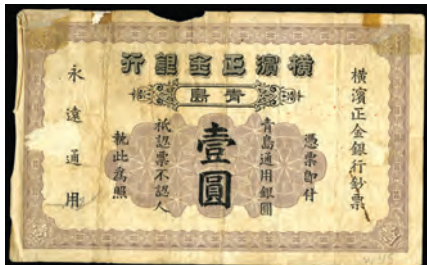 橫濱正金銀行
青島
橫濱正金銀行鈔票
憑票即付
青島通用銀圓
壹圓
祗認票不認人
執此爲照
永遠通用